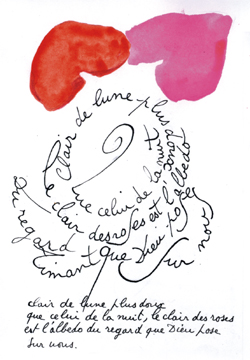 Clair de lune plus doux
que celui de la nuit
le clair des roses est l'albédo
Du regard
aimant que Dieu pose
sur nous
clair de lune plus doux
que celui de la nuit, le clair des roses
est l'albédo du regard que Dieu pose
sur nous.